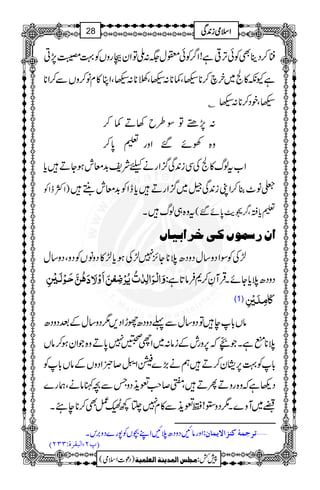 اسلامی زندگی 28
فنا کر دینا بھی کوئی ترقی ہے! اگر کوئی معقول جگہ نہ ملی تو ان بیچاروں کو بہت مصیبت پڑتی
ہے کیونکہ کالج میں خرچ کرنا سیکھا، کمانا نہ سیکھا، کھلانا نہ سیکھا، اپنا کام نوکروں سے کرانا
سیکھا، خود کرنا نہ سیکھا ۔
نہ پڑھتے تو سو طرح کھاتے کما کر
وہ کھوئے گئے اور تعلیم پا کر
اب یہ لوگ کالج کی سی زندگی گزارنے کیلئے شریف بدمعاش ہو جاتے ہیں یا
جعلی نوٹ بنا کر اپنی زندگی جیل میں گزارتے ہیں یا ڈاکو بدمعاش بنتے ہیں (اکثر ڈاکو
تعلیم یافتہ گریجویٹ پائے گئے) یہ وہ ہی لوگ ہیں۔
ان رسموں کی خرابیاں
لڑکی کو سوا دو سال دودھ پلانا جائز نہیں لڑکی ہو یا لڑکا دونوں کو دو سال، دو سال
دودھ پلایا جائے۔ قرآن کریم فرماتا ہے: وَالْوَالِدٰتُ یُرْضِعْنَ اَوْلَادَهُنَّ حَوْلَیْنِ
كَامِلَیْنِ (1)
ماں باپ چاہیں تو دو سال سے پہلے دودھ چھوڑا دیں مگر دو سال کے بعد دودھ
پلانا منع ہے۔ جو بچے کہ پرورش کے زمانہ میں اچھی صحبتیں نہیں پاتے وہ جوان ہو کر ماں
باپ کو بہت پریشان کرتے ہیں ہم نے بڑے فیشن ایبل صاحبزادوں کے ماں باپ کو
دیکھا ہے کہ وہ روتے پھرتے ہیں، مفتی صاحب تعویذ دو جس سے بچہ کہنا مانے، ہمارے
قبضے میں آوے۔ مگر دوستو! فقط تعویذ سے کام نہیں چلتا کچھ ٹھیک عمل بھی کرنا چاہئے۔
1 ..... ترجمۂ کنز الایمان: اور مائیں دودھ پلائیں اپنے بچوں کو پورے دو برس۔
(پ ۲، البقرۃ: ۲۳۳)
پیش کش: مجلس المدینۃ العلمیۃ (دعوتِ اسلامی)